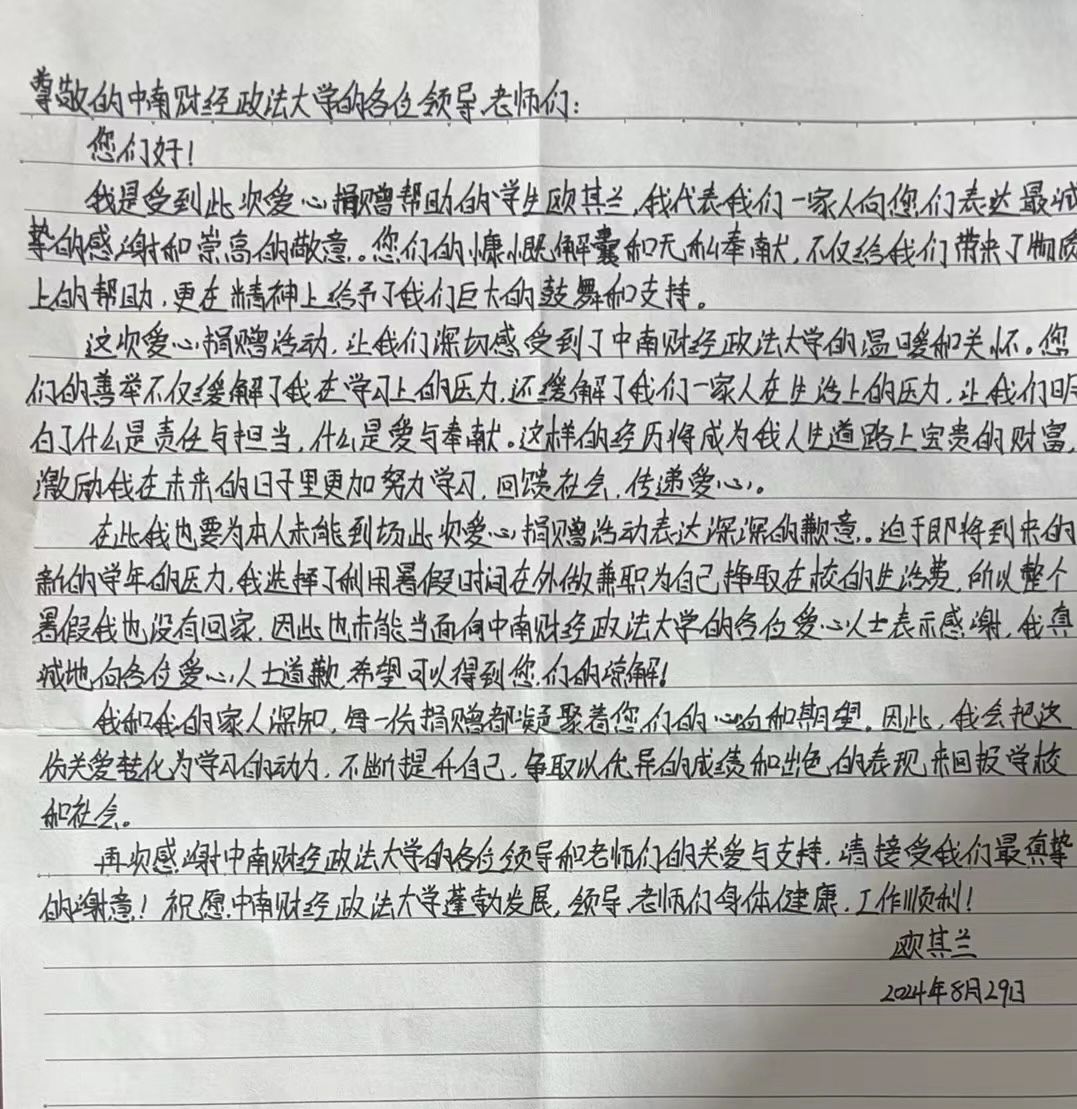 尊敬的中南财经政法大学的各位领导、老师们：
您们好！
我是受到此次爱心捐赠帮助的学生欧其兰，我代表我们一家人向您们表达最诚
挚的感谢和崇高的敬意。您们的慷慨解囊和无私奉献，不仅给我们带来了物质
上的帮助，更在精神上给予了我们巨大的鼓舞和支持。
这次爱心捐赠活动，让我们深切感受到了中南财经政法大学的温暖和关怀。您
们的善举不仅缓解了我在学习上的压力，还缓解了我们一家人在生活上的压力，让我们明
白了什么是责任与担当，什么是爱与奉献。这样的经历将成为我人生道路上宝贵的财富，
激励我在未来的日子里更加努力学习，回馈社会，传递爱心。
在此我也要为本人未能到场此次爱心捐赠活动表达深深的歉意。迫于即将到来的
新的学年的压力，我选择了利用暑假时间在外做兼职为自己挣取在校的生活费，所以整个
暑假我也没有回家，因此也未能当面向中南财经政法大学的各位爱心人士表示感谢，我真
诚地向各位爱心人士道歉，希望可以得到您们的谅解！
我和我的家人深知，每一份捐赠都凝聚着您们的心血和期望，因此，我会把这
份关爱转化为学习的动力，不断提升自己，争取以优异的成绩和出色的表现来回报学校
和社会。
再次感谢中南财经政法大学的各位领导和老师们的关爱与支持，请接受我们最真挚
的谢意！祝愿中南财经政法大学蓬勃发展，领导、老师们身体健康，工作顺利！
欧其兰
2024年8月29日